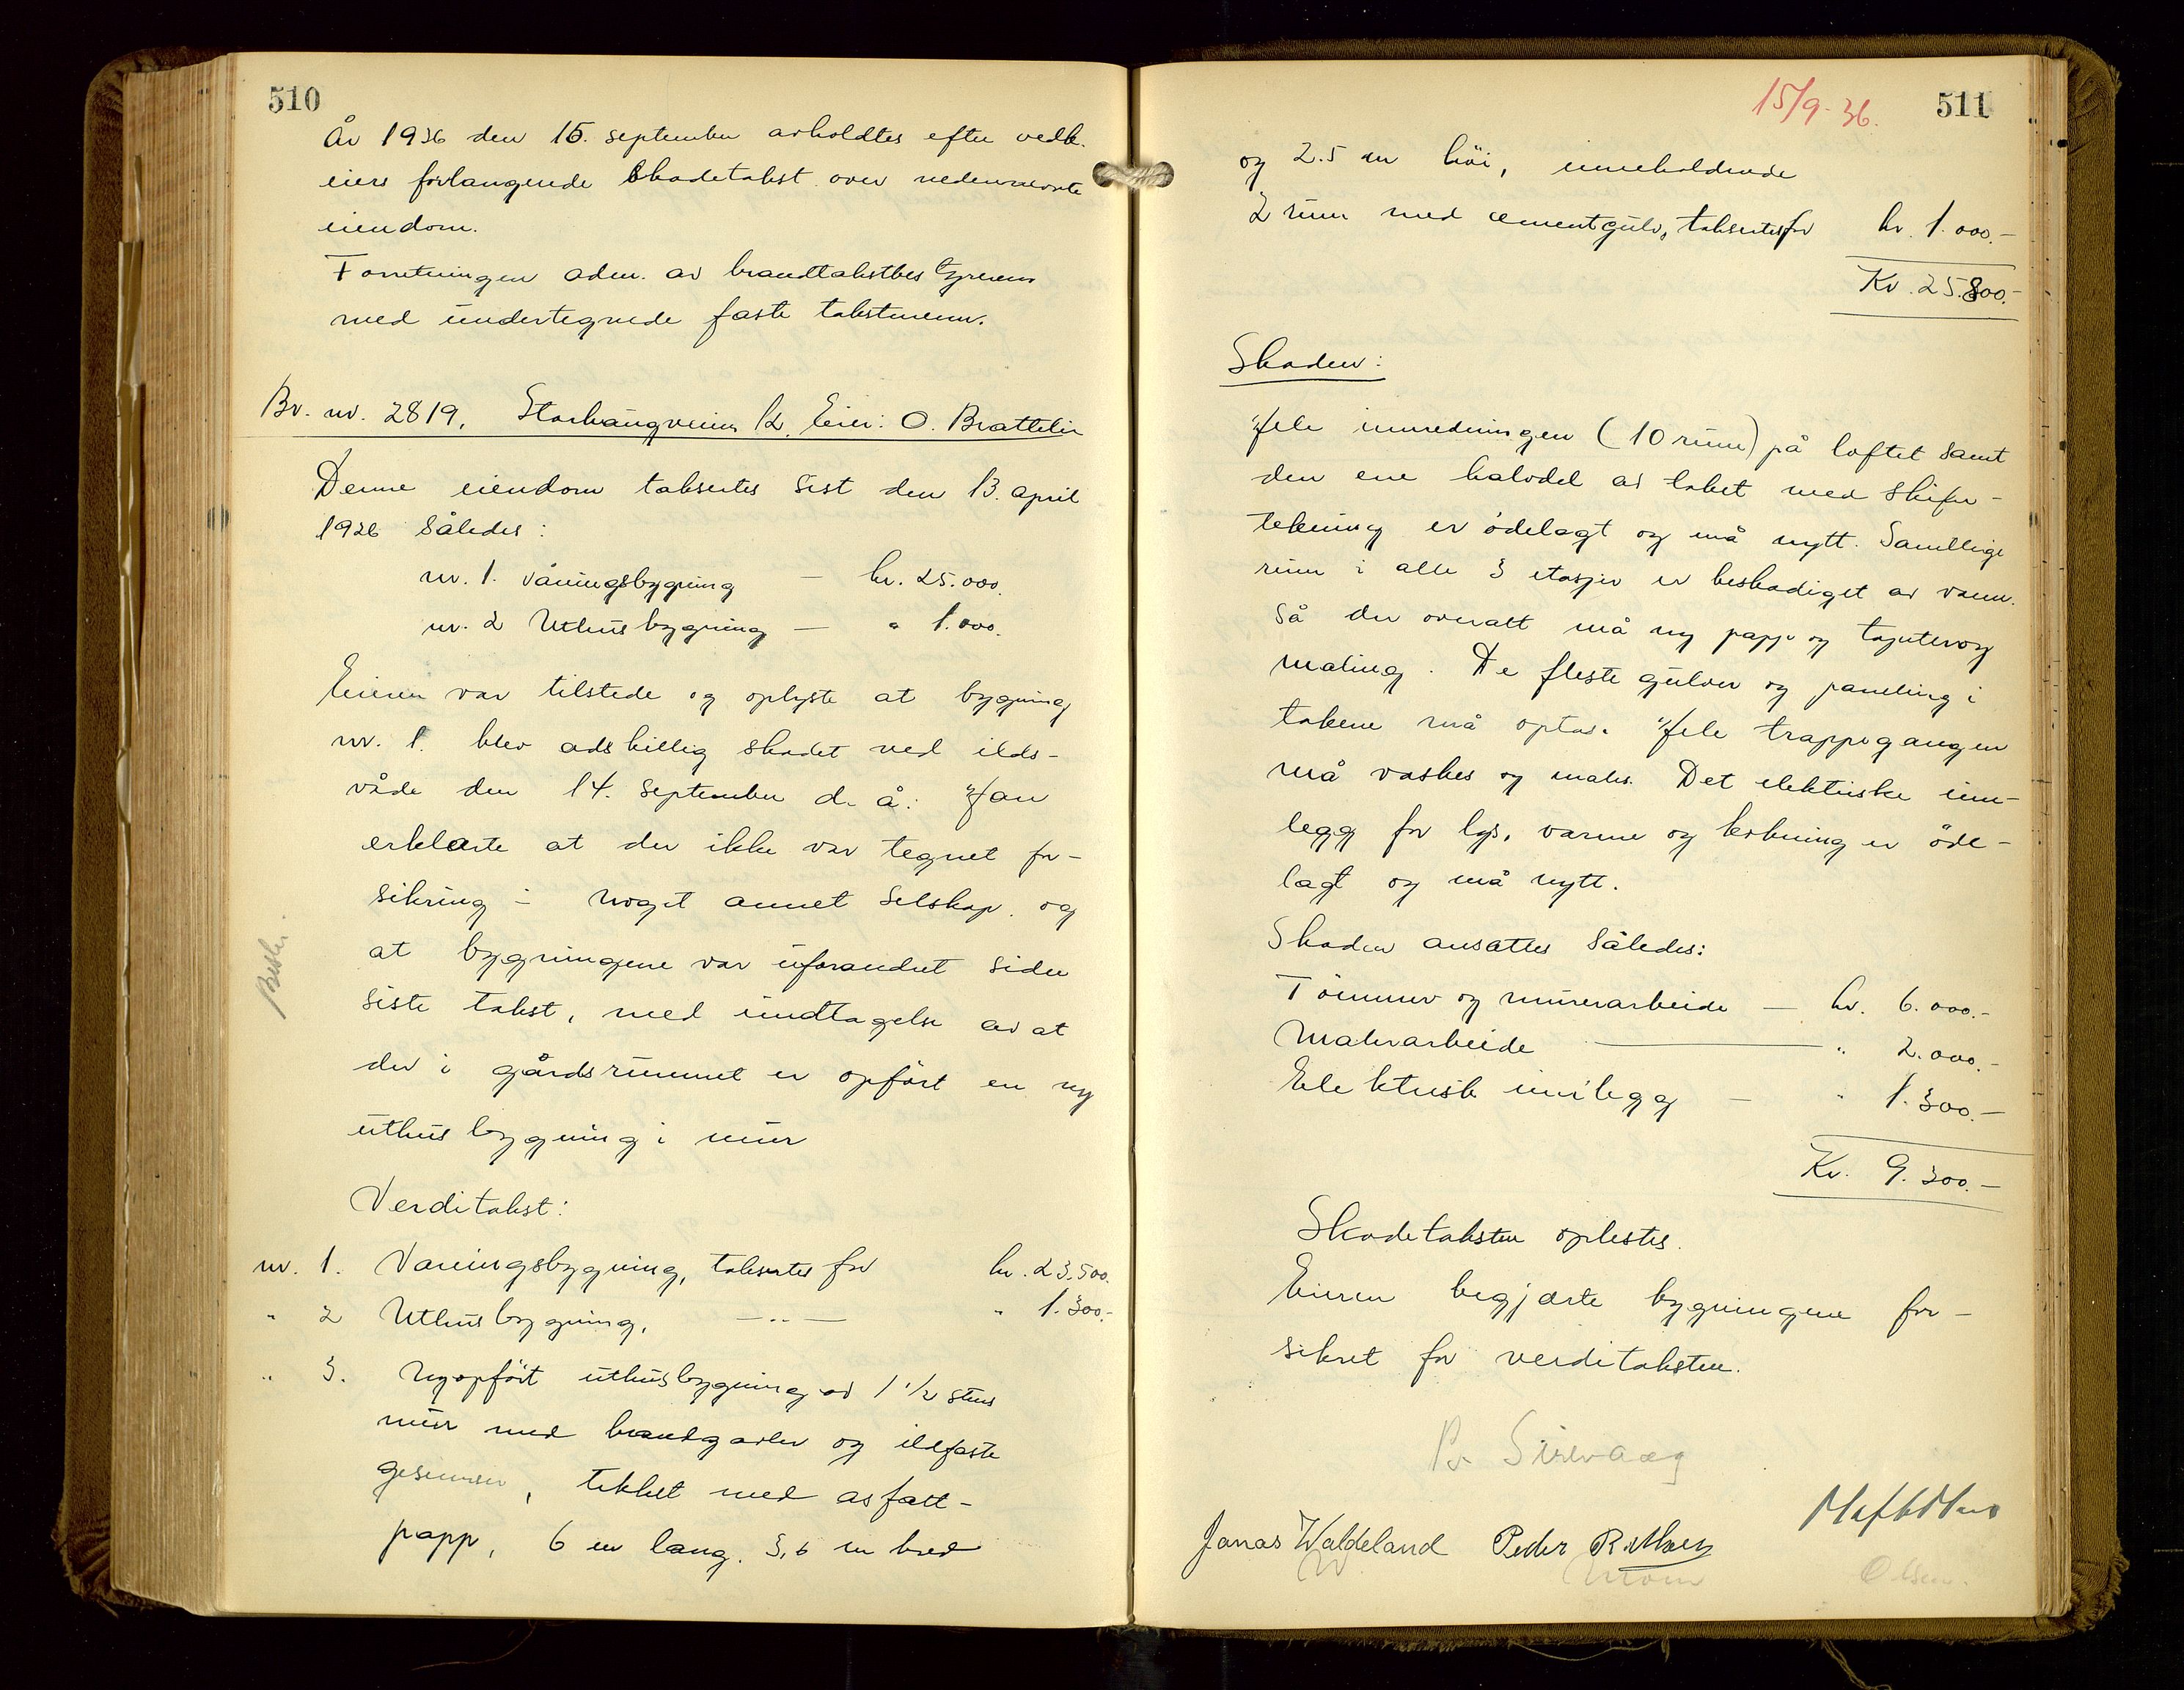 510
År 1936 den 15. september avholdtes efter vedk.
eiers forlangende skadetakst over nedennevnte
eiendom.
Forretningen adm. av brandtakstbestyreren
med undertegnede faste takstmenn.
Br. nr. 2819. Storhaugveien 12. Eier: O. Brattelie
Denne eiendom taksertes sist den 13. april
1926 således:
nr. 1. Våningsbygning — kr. 25.000.
nr. 2 Uthusbygning — " 1.000.
Eieren var tilstede og oplyste at bygning
nr. 1. blev adskillig skadet ved ilds-
våde den 14. september d. å. Han
erklærte at der ikke var tegnet for-
sikring i noget annet selskap. og
at bygningene var uforandret siden
siste takst, med undtagelse av at
der i gårdsrummet er opført en ny
uthusbygning i mur
Verditakst:
nr. 1. Våningsbygning, taksertes for kr. 23.500.
" 2 Uthusbygning, — " — " 1.300.-
" 3. Nyopført uthusbygning av 1 1/2 stens
mur med brandgavler og ildfaste
gesimser, tekket med asfalt-
papp, 6 m lang. 3,6 m bred
15/9-36.
511
og 2.5 m höi, inneholdende
2 rum med cementgulv, taksertes for kr. 1.000.-
Kr. 25.800.-
Skaden:
Hele innredningen (10 rum) på loftet samt
den ene halvdel av taket med skifer-
tekning er ödelagt og må nytt. Samtlige
rum i alle 3 etasjer er beskadiget av vann.
Så der overalt må ny papp og tapeter og
maling. De fleste gulver og paneling i
takene må optas. Hele trappegangen
må vaskes og males. Det elektriske inn-
legg for lys, varme og kokning er öde-
lagt og må nytt.
Skaden ansattes således:
Tömmer og murerarbeide — kr. 6.000.-
Malerarbeide — " 2.000.-
Elektrisk innlegg — " 1.300.-
Kr. 9.300.-
Skadetaksten oplestes.
Eieren begjærte bygningene for-
sikret for verditaksten.
Sirevaag
Jonas Waldeland Peder R. Moen
W Moen Olsen.